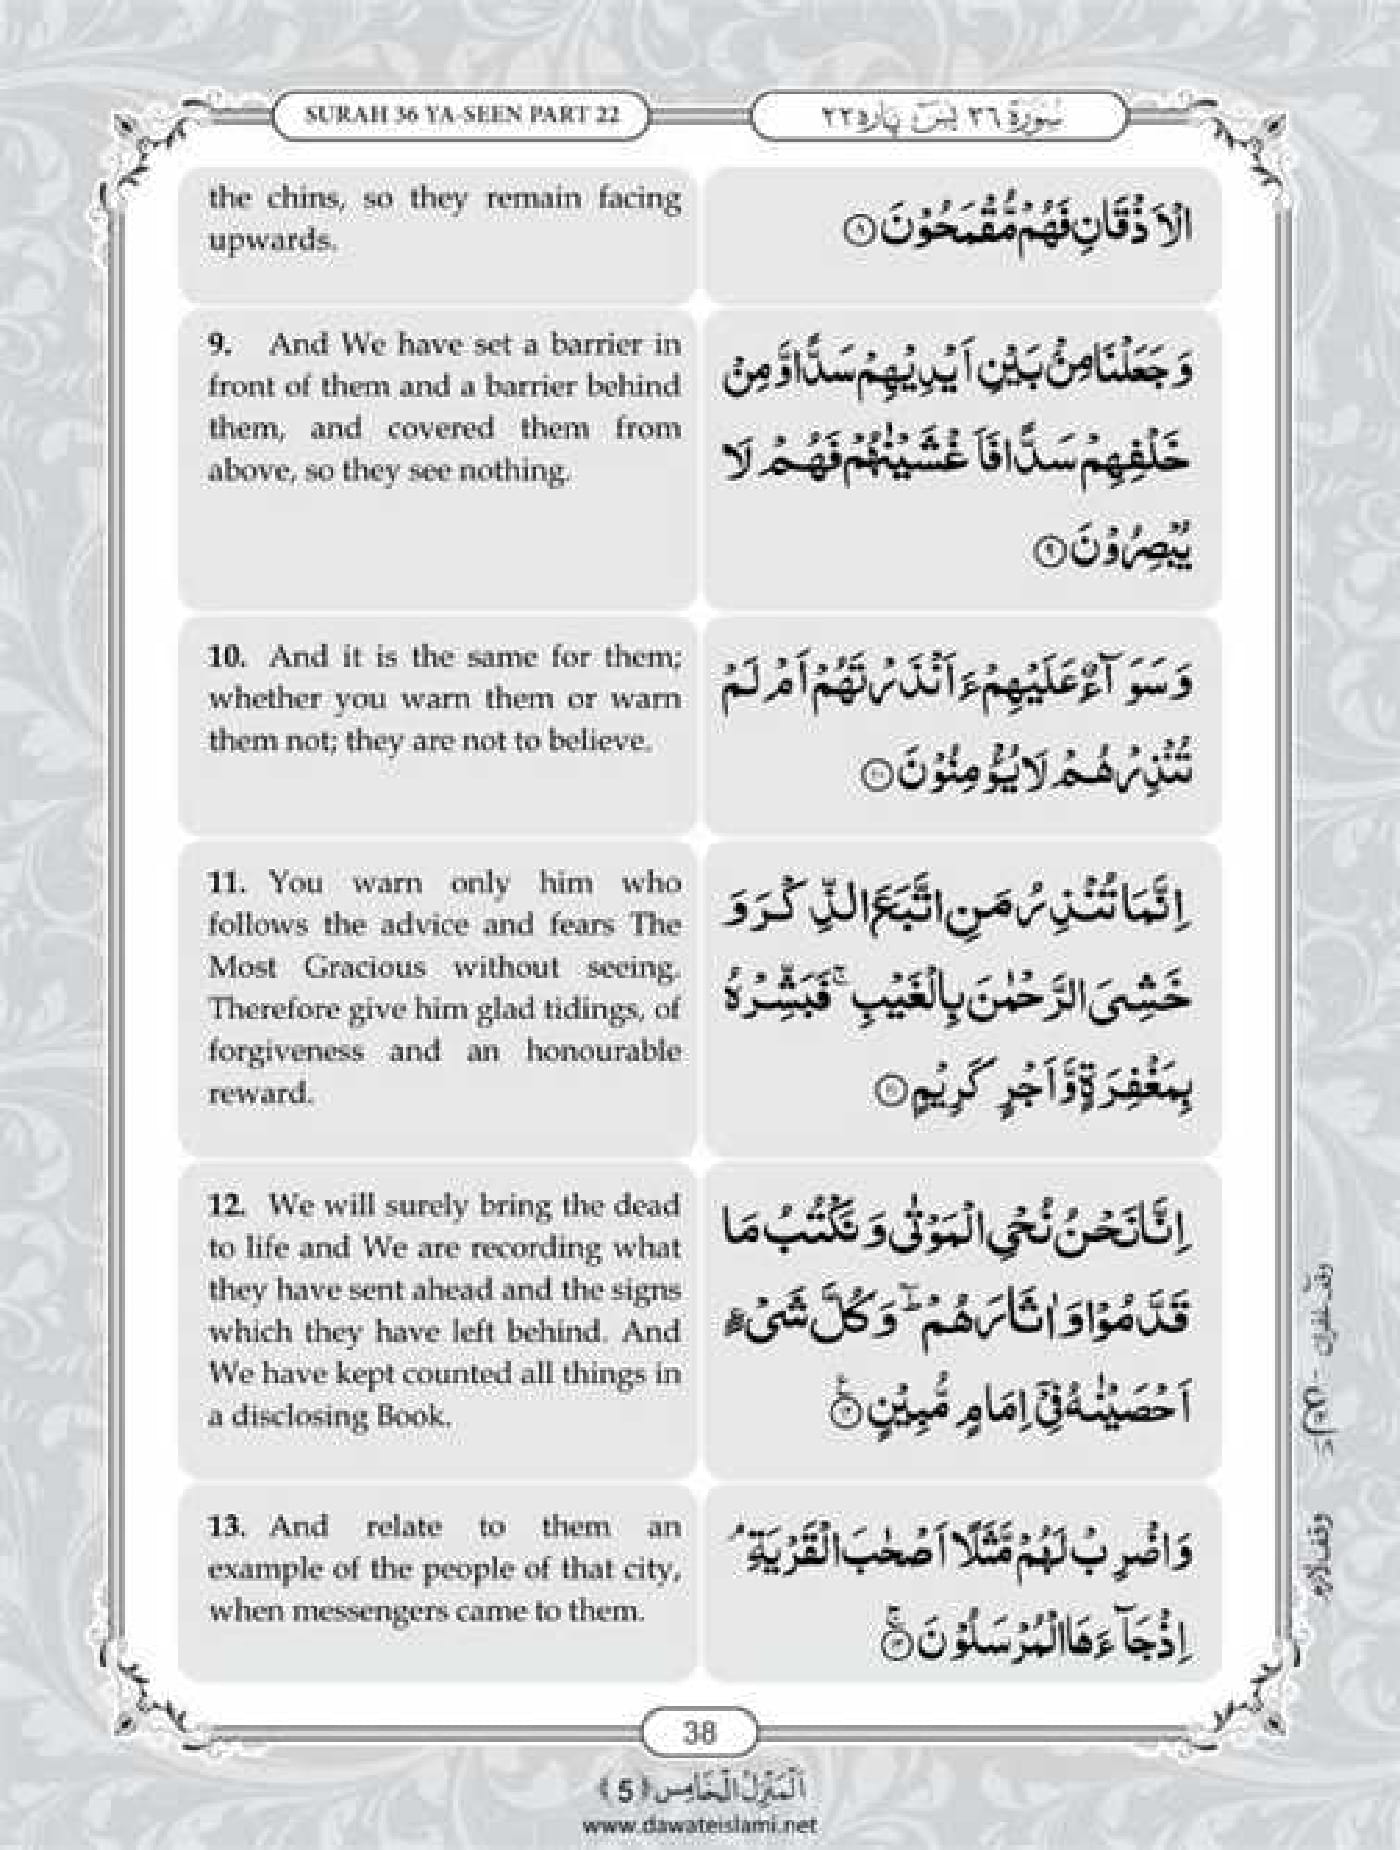 SURAH 36 YA-SEEN PART 22
سُوْرَة ٣٦ يٰسٓ پاره ٢٢
the chins, so they remain facing
upwards.
الْاَذْقَانِ فَهُمْ مُّقْمَحُوْنَ ﴿٨﴾
9. And We have set a barrier in
front of them and a barrier behind
them, and covered them from
above, so they see nothing.
وَ جَعَلْنَا مِنْۢ بَيْنِ اَيْدِيْهِمْ سَدًّا وَّ مِنْ
خَلْفِهِمْ سَدًّا فَاَغْشَيْنٰهُمْ فَهُمْ لَا
يُبْصِرُوْنَ ﴿٩﴾
10. And it is the same for them;
whether you warn them or warn
them not; they are not to believe.
وَ سَوَآءٌ عَلَيْهِمْ ءَاَنْذَرْتَهُمْ اَمْ لَمْ
تُنْذِرْهُمْ لَا يُؤْمِنُوْنَ ﴿١٠﴾
11. You warn only him who
follows the advice and fears The
Most Gracious without seeing.
Therefore give him glad tidings, of
forgiveness and an honourable
reward.
اِنَّمَا تُنْذِرُ مَنِ اتَّبَعَ الذِّكْرَ وَ
خَشِىَ الرَّحْمٰنَ بِالْغَيْبِ ۚ فَبَشِّرْهُ
بِمَغْفِرَةٍ وَّ اَجْرٍ كَرِيْمٍ ﴿١١﴾
12. We will surely bring the dead
to life and We are recording what
they have sent ahead and the signs
which they have left behind. And
We have kept counted all things in
a disclosing Book.
اِنَّا نَحْنُ نُحْىِ الْمَوْتٰى وَ نَكْتُبُ مَا
قَدَّمُوْا وَ اٰثَارَهُمْ ؕ وَ كُلَّ شَىْءٍ
اَحْصَيْنٰهُ فِىْۤ اِمَامٍ مُّبِيْنٍ ﴿١٢﴾
13. And relate to them an
example of the people of that city,
when messengers came to them.
وَ اضْرِبْ لَهُمْ مَّثَلًا اَصْحٰبَ الْقَرْيَةِ ۘ
اِذْ جَآءَهَا الْمُرْسَلُوْنَ ﴿١٣﴾
وقف لازم
38
اَلْمَنْزِلُ الْخَامِس (5)
www.dawateislami.net